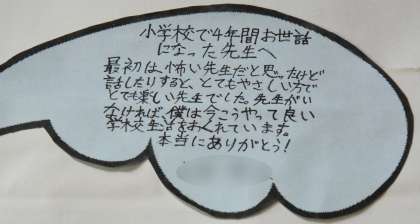 小学校で4年間お世話
になった先生へ
最初は、怖い先生だと思ったけど
話したりすると、とてもやさしい方で
とても楽しい先生でした。先生がい
なければ、僕は今こうやって良い
学校生活をおくれています。
本当にありがとう!